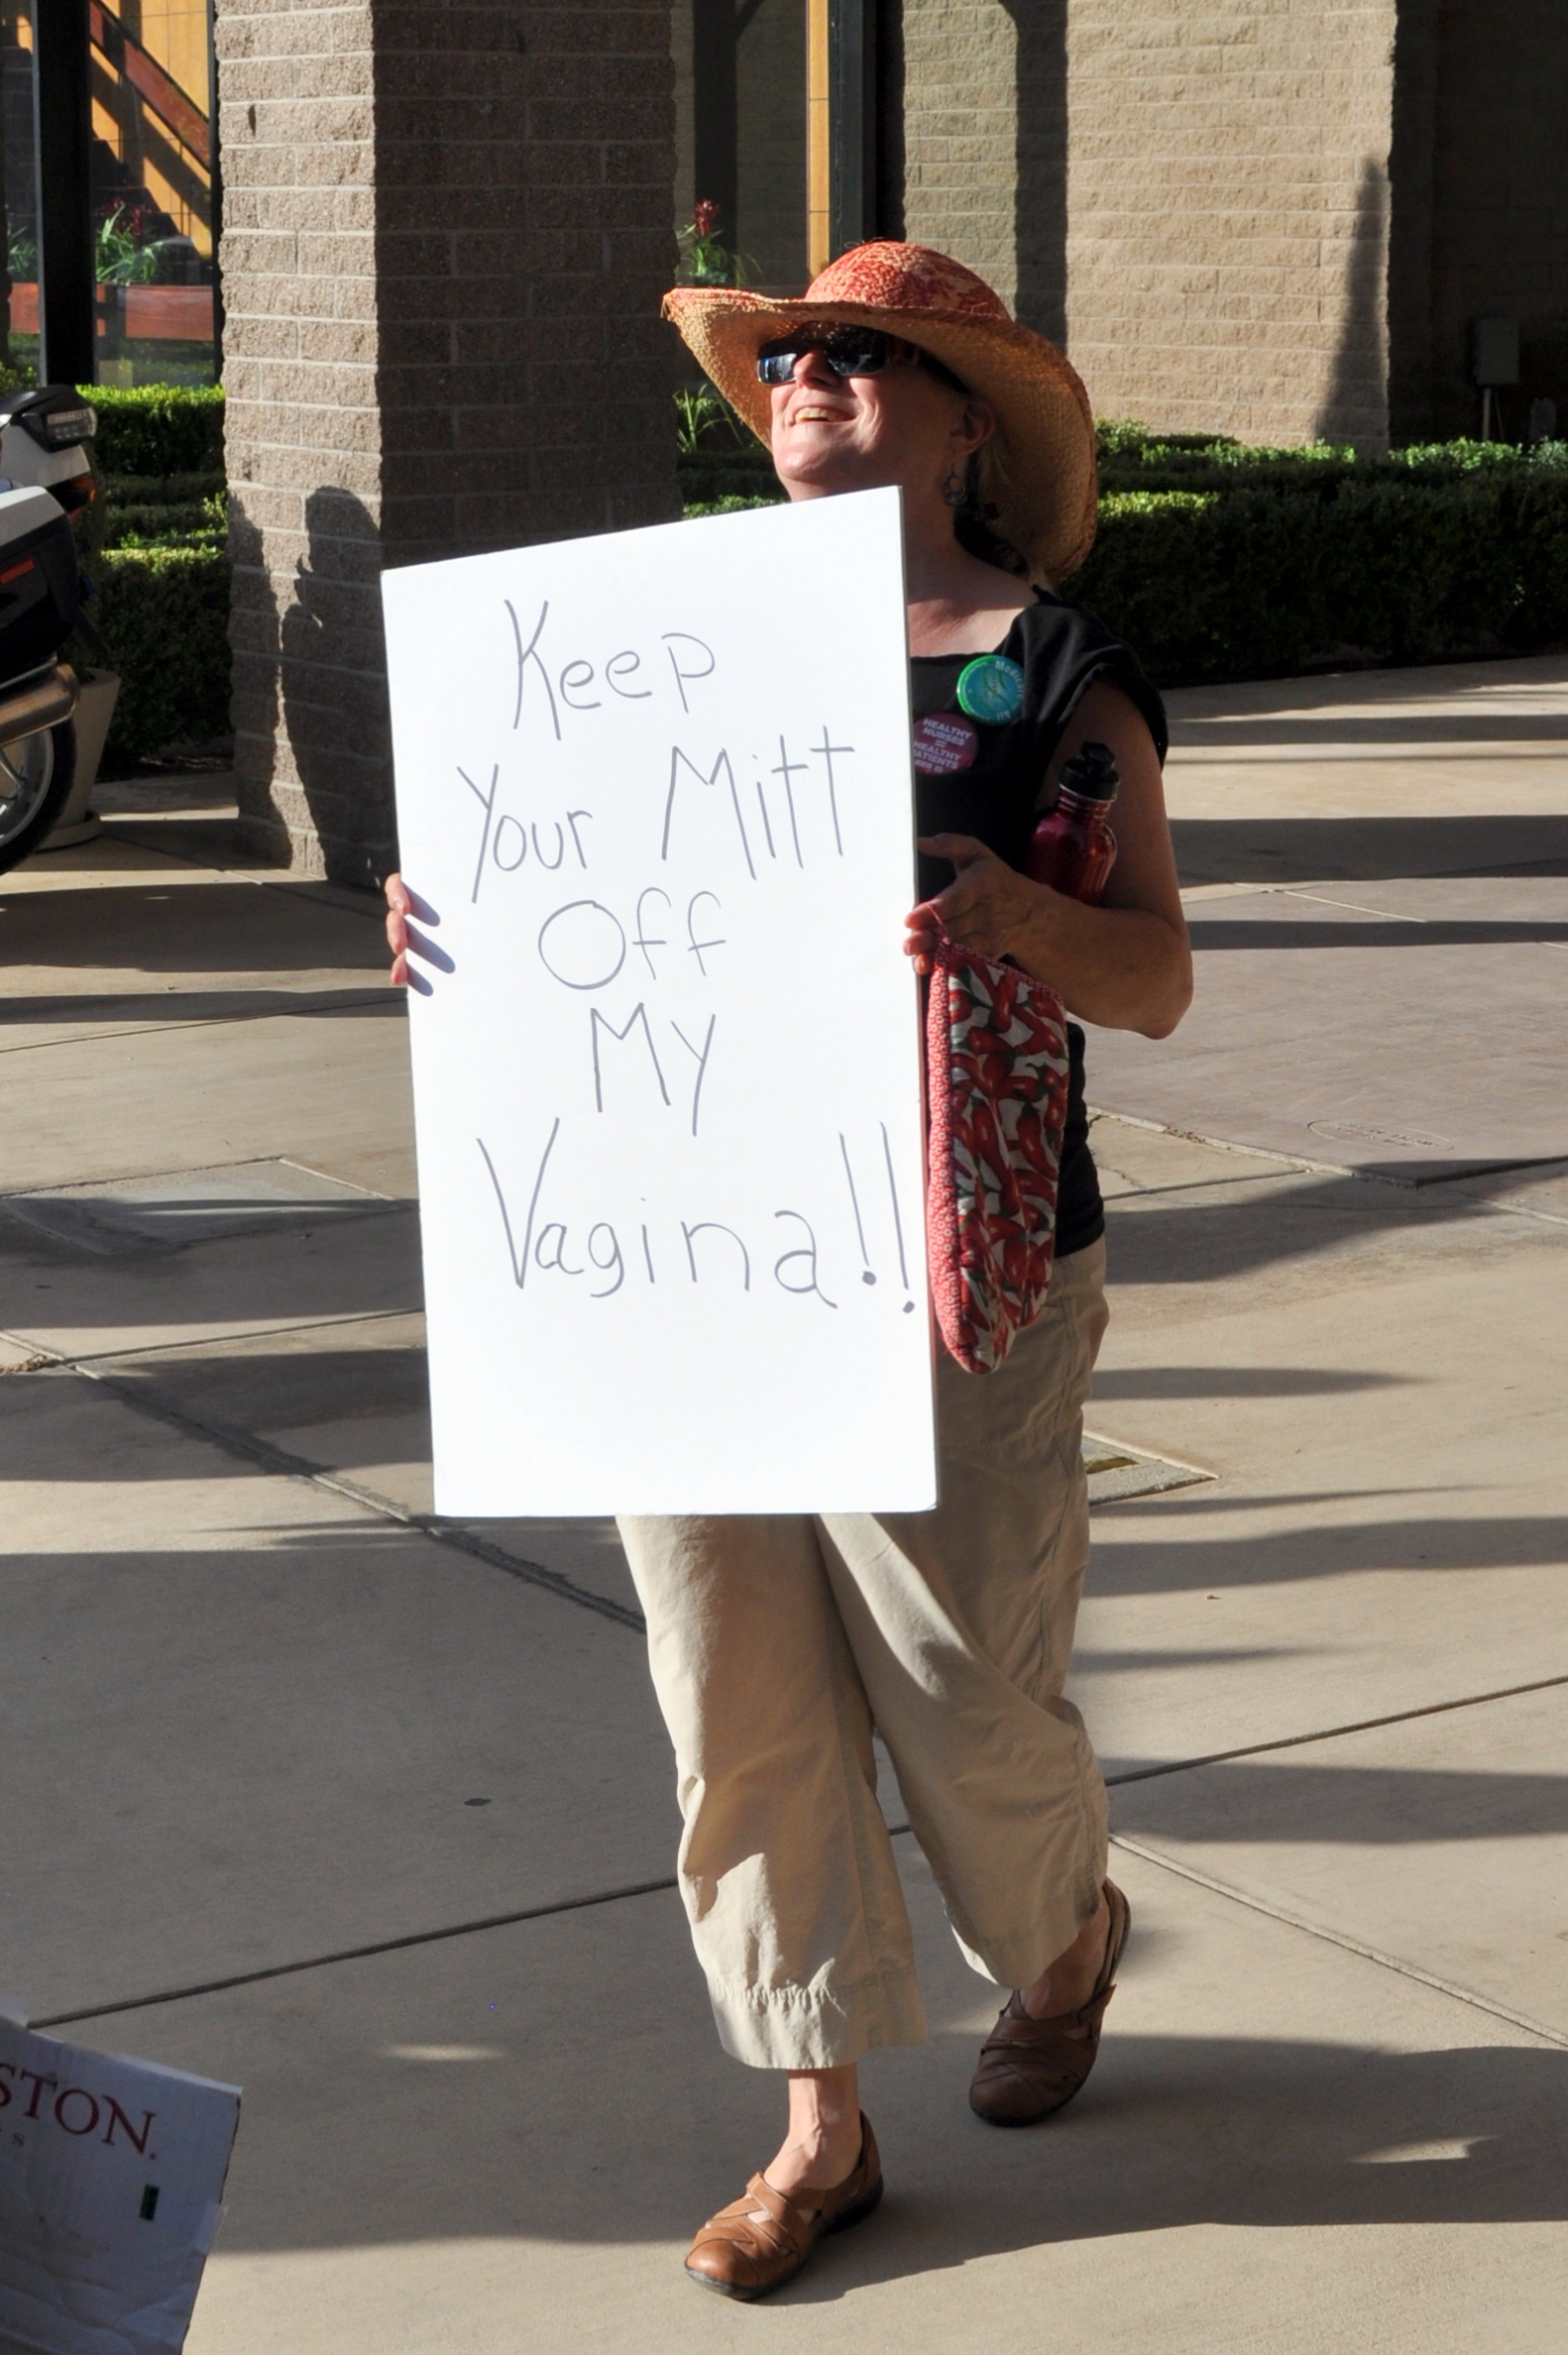 Keep
Your Mitt
Off
My
Vagina!!
HEALTHY
NURSES
=
HEALTHY
PATIENTS
STON.